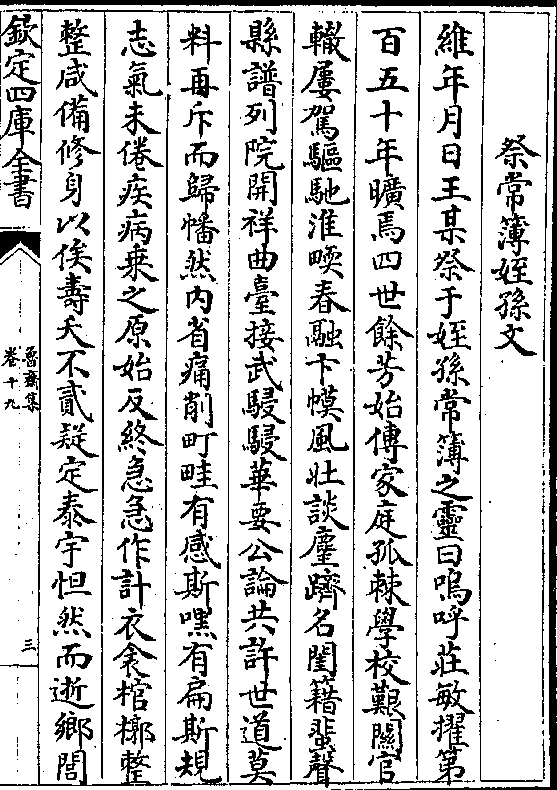 祭常簿姪孫文
維年月日王某祭于姪孫常簿之靈曰嗚呼莊敏擢第
百五十年曠焉四世餘芳始傳家庭孤棘學校艱關官
轍屢駕驅馳淮堧春融卞幙風壯談麈躋名閨籍蜚聲
縣譜列院開祥曲臺接武駸駸華要公論共許世道莫
料再斥而歸幡然内省痛削町畦有感斯嘿有扁斯規
志氣未倦疾病乗之原始反終急急作計衣衾棺槨整
整咸備修身以俟壽夭不貳凝定泰宇怛然而逝鄉閭
欽定四庫全書
魯齋集
卷十九
三